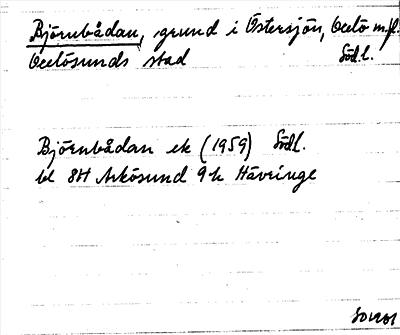 Björnbådan, grund i Östersjön, Oxelö m.fl.
Oxelösunds stad Södl.
Björnbådan ek (1959) Södl.
bl 8H Arkösund 9h Hävringe